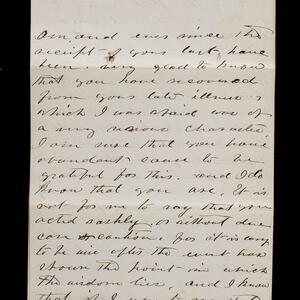 am, and ever since the
receipt of your last, have
been. Very glad to know
that you have recovered
from your late illness
which I was afraid was of
a very serious character.
I am sure that you have
abundant cause to be
grateful for this, and I do
know that you are. It is
not for me to say that you
acted rashly, or without due
caution; for it is easy
to be wise after the event has
shown the point in which
the wisdom lies, and I know
that if I